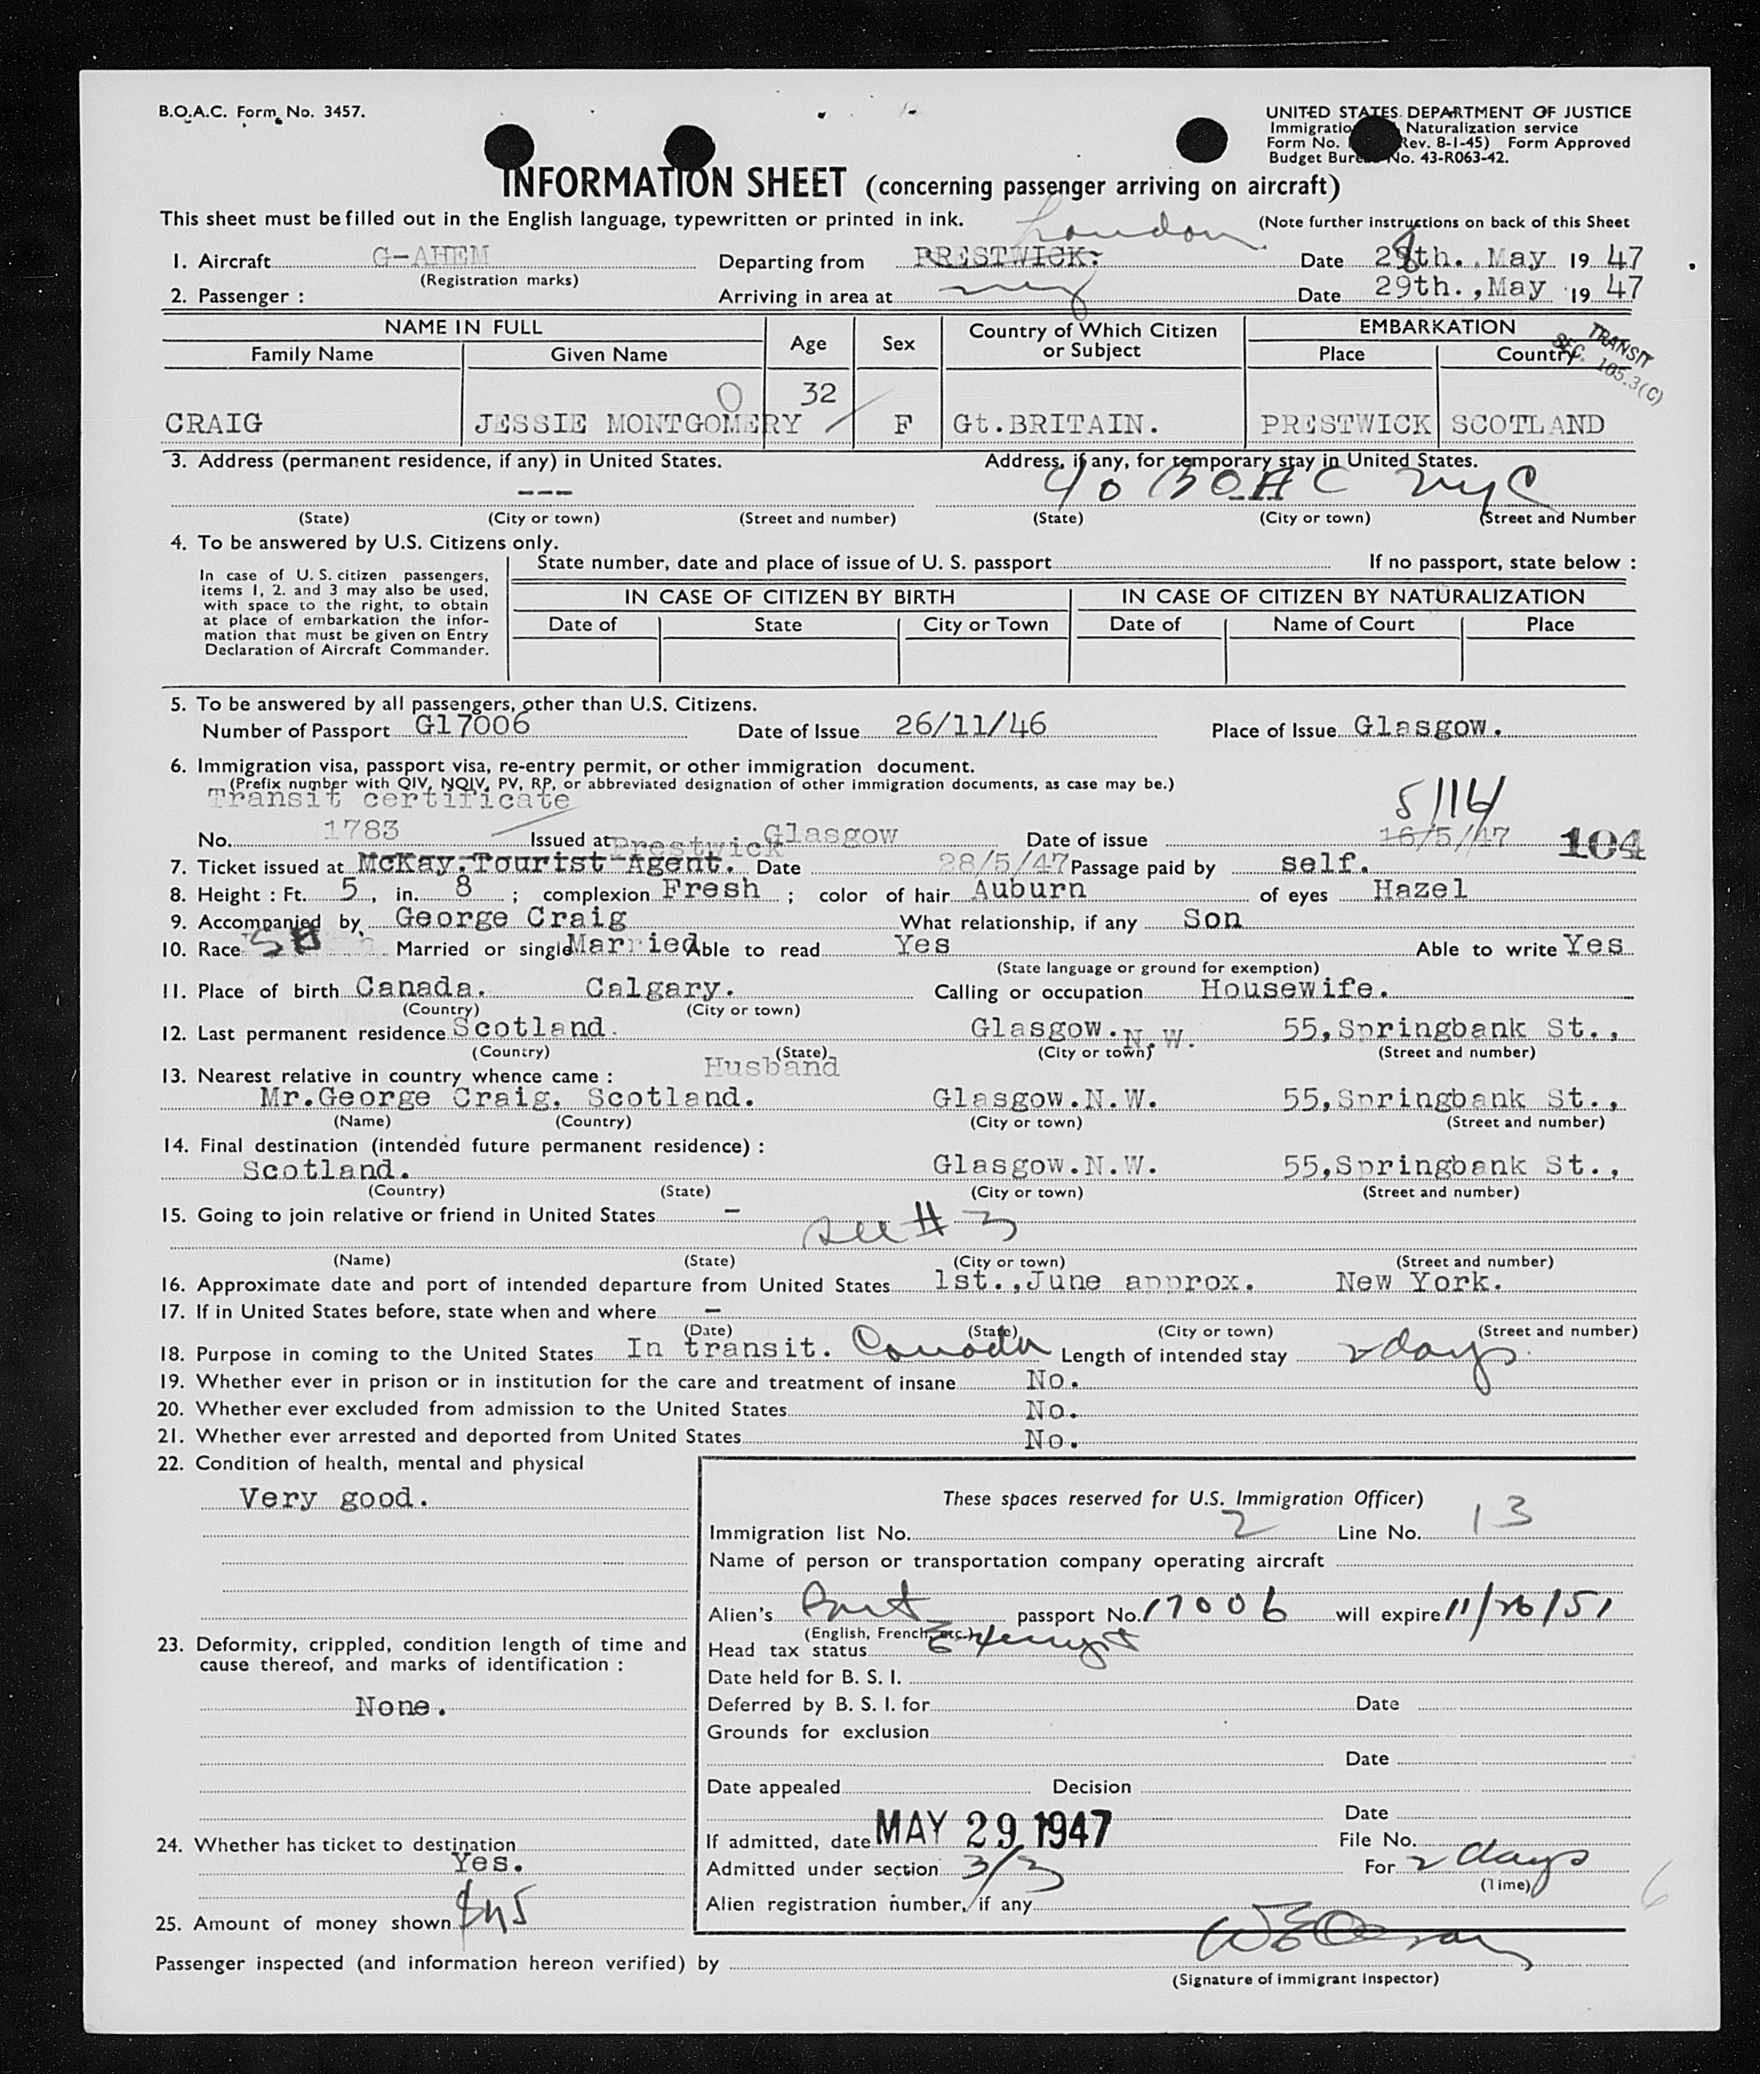 B.O.A.C. Form No. 3457.
UNITED STATES DEPARTMENT OF JUSTICE
Immigratio Naturalization service
Form No. Rev. 8-1-45) Form Approved
Budget Bure No. 43-R063-42.
INFORMATION SHEET (concerning passenger arriving on aircraft)
This sheet must be filled out in the English language, typewritten or printed in ink.
(Note further instructions on back of this Sheet
London
1. Aircraft G-AHEM Departing from PRESTWICK. Date 28th. May 19 47.
(Registration marks)
2. Passenger : Arriving in area at nyc Date 29th.,May 19 47
NAME IN FULL Age Sex Country of Which Citizen or Subject EMBARKATION
Family Name Given Name Place Country
TRANSIT
SEC. 105.3(C)
0 32
CRAIG JESSIE MONTGOMERY / F Gt.BRITAIN. PRESTWICK SCOTLAND
3. Address (permanent residence, if any) in United States. Address, if any, for temporary stay in United States.
--- c/o BOAC nyC
(State) (City or town) (Street and number) (State) (City or town) (Street and Number
4. To be answered by U.S. Citizens only.
State number, date and place of issue of U. S. passport If no passport, state below :
In case of U. S. citizen passengers,
items 1, 2. and 3 may also be used,
with space to the right, to obtain
at place of embarkation the infor-
mation that must be given on Entry
Declaration of Aircraft Commander.
IN CASE OF CITIZEN BY BIRTH IN CASE OF CITIZEN BY NATURALIZATION
Date of State City or Town Date of Name of Court Place
5. To be answered by all passengers, other than U.S. Citizens.
Number of Passport G17006 Date of Issue 26/11/46 Place of Issue Glasgow.
6. Immigration visa, passport visa, re-entry permit, or other immigration document.
(Prefix number with QIV, NQIV, PV, RP, or abbreviated designation of other immigration documents, as case may be.)
Transit certificate 5/14
No. 1783 Issued at Prestwick Glasgow Date of issue 16/5/47 104
7. Ticket issued at McKay.Tourist Agent. Date 28/5/47 Passage paid by self.
8. Height : Ft. 5, in. 8 ; complexion Fresh ; color of hair Auburn of eyes Hazel
9. Accompanied by George Craig What relationship, if any Son
10. Race Married or single Married Able to read Yes Able to write Yes
(State language or ground for exemption)
11. Place of birth Canada. Calgary. Calling or occupation Housewife.
(Country) (City or town)
12. Last permanent residence Scotland. Glasgow.N.W. 55,Springbank St.,
(Country) (State) (City or town) (Street and number)
13. Nearest relative in country whence came : Husband
Mr.George Craig, Scotland. Glasgow.N.W. 55,Springbank St.,
(Name) (Country) (City or town) (Street and number)
14. Final destination (intended future permanent residence) :
Scotland. Glasgow.N.W. 55,Springbank St.,
(Country) (State) (City or town) (Street and number)
15. Going to join relative or friend in United States –
see # 3
(Name) (State) (City or town) (Street and number)
16. Approximate date and port of intended departure from United States 1st.,June approx. New York.
17. If in United States before, state when and where –
(Date) (State) (City or town) (Street and number)
18. Purpose in coming to the United States In transit. Canada Length of intended stay 2 days
19. Whether ever in prison or in institution for the care and treatment of insane No.
20. Whether ever excluded from admission to the United States No.
21. Whether ever arrested and deported from United States No.
22. Condition of health, mental and physical
Very good.
These spaces reserved for U.S. Immigration Officer)
Immigration list No. 2 Line No. 13
Name of person or transportation company operating aircraft
Alien's Brit passport No. 17006 will expire 11/26/51
(English, French, etc.)
23. Deformity, crippled, condition length of time and
cause thereof, and marks of identification :
None.
Head tax status Exempt
Date held for B. S. I.
Deferred by B. S. I. for Date
Grounds for exclusion
Date
Date appealed Decision
Date
If admitted, date MAY 29 1947 File No.
Admitted under section 3/3 For 2 days
(Time)
Alien registration number, if any
24. Whether has ticket to destination
Yes.
25. Amount of money shown $45
6
Passenger inspected (and information hereon verified) by
(Signature of immigrant Inspector)